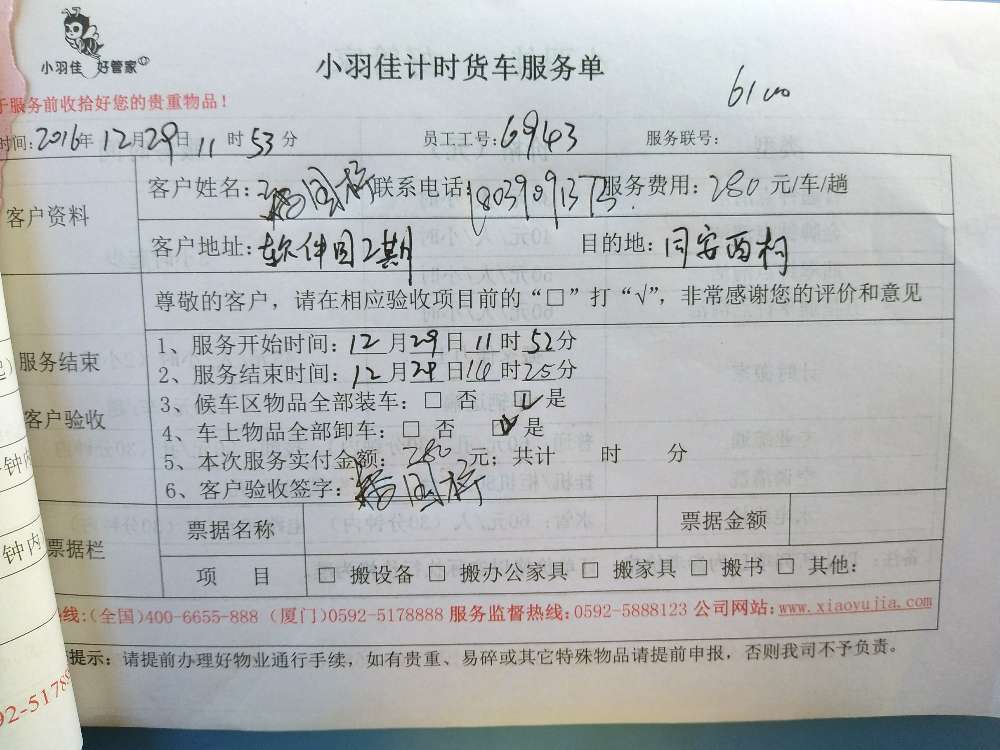 小羽佳 好管家
小羽佳计时货车服务单
于服务前收拾好您的贵重物品！
时间:2016年12月29日11时53分 员工工号:6943 服务联号:
客户资料
客户姓名: 联系电话: 18039091373 服务费用: 280 元/车/趟
客户地址: 软件园2期 目的地: 同安西柯
尊敬的客户，请在相应验收项目前的“□”打“√”，非常感谢您的评价和意见
服务结束
客户验收
1、服务开始时间: 12月29日11时52分
2、服务结束时间: 12月29日14时25分
3、候车区物品全部装车: □ 否 □ 是
4、车上物品全部卸车: □ 否 □ 是
5、本次服务实付金额: 280元; 共计 时 分
6、客户验收签字:
钟内
钟内
票据栏
票据名称 票据金额
项 目 □ 搬设备 □ 搬办公家具 □ 搬家具 □ 搬书 □ 其他:
线:(全国)400-6655-888 (厦门)0592-5178888 服务监督热线:0592-5888123 公司网站:www.xiaoyujia.com
提示: 请提前办理好物业通行手续，如有贵重、易碎或其它特殊物品请提前申报，否则我司不予负责。
92-51789